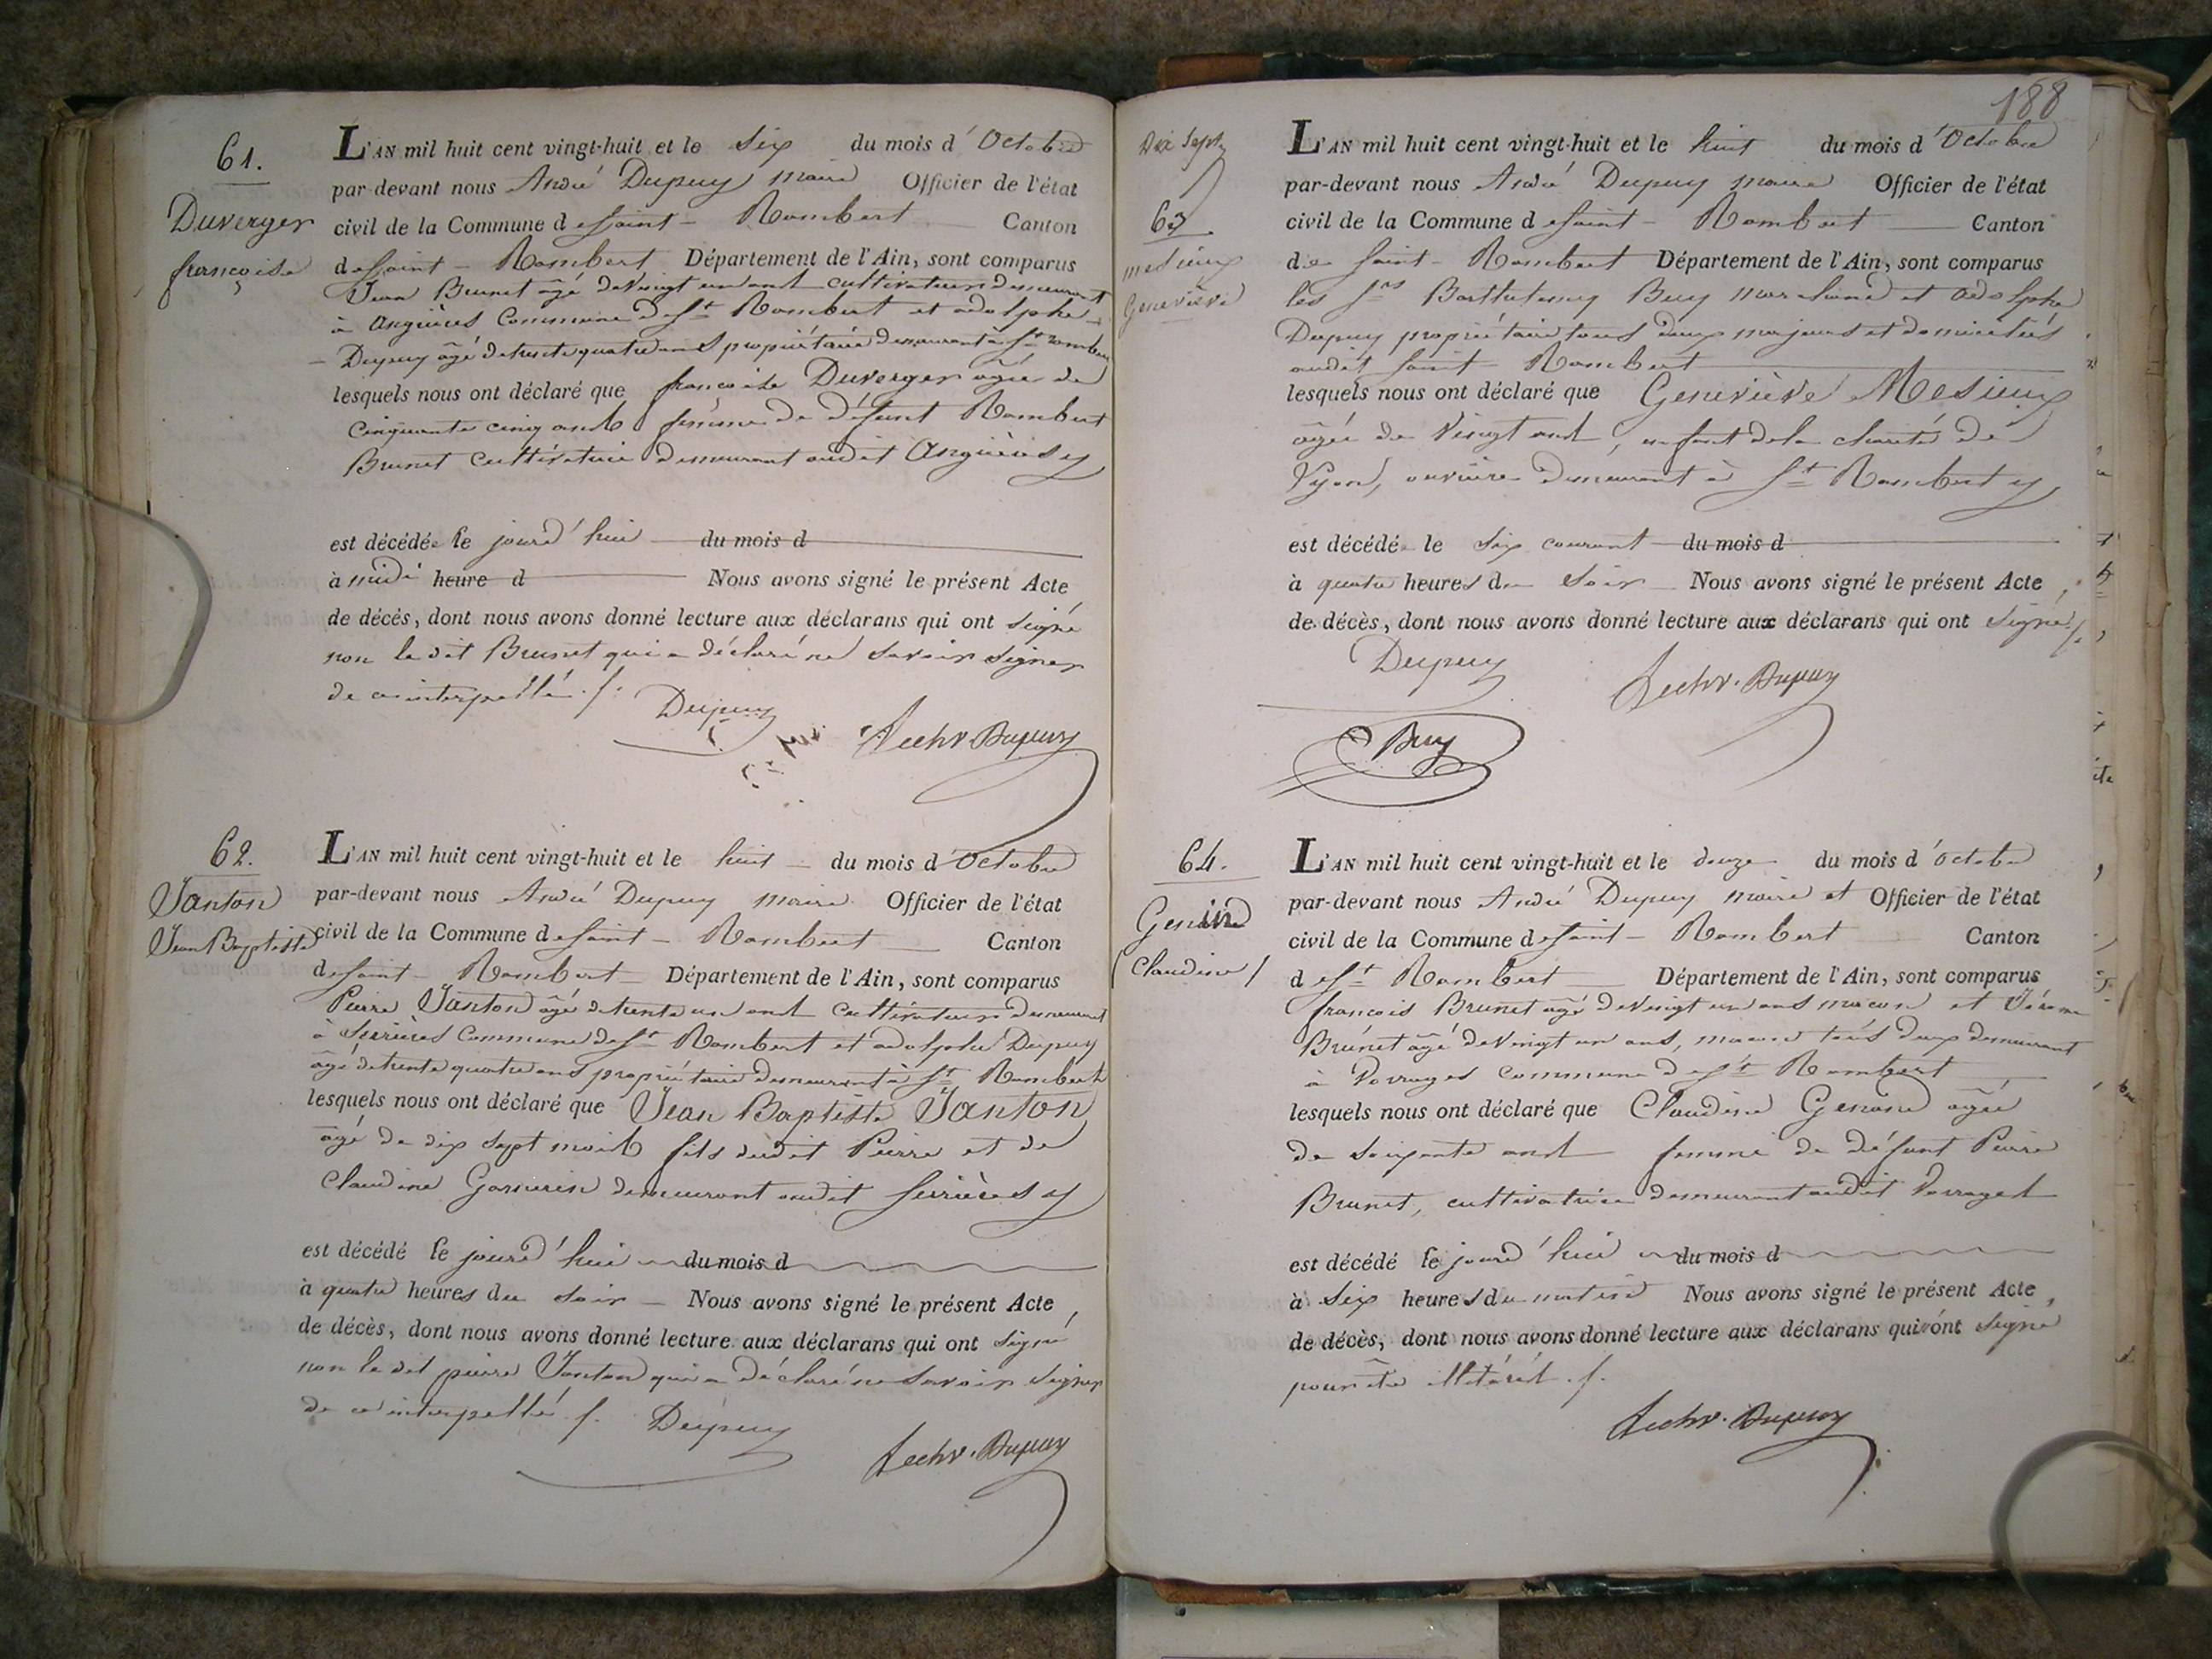 61.
Duverger
françoise
L'AN mil huit cent vingt-huit et le Six du mois d'Octobre
par-devant nous André Dupuy maire Officier de l'état
civil de la Commune de Saint-Rambert Canton
de Saint-Rambert Département de l'Ain, sont comparus
Jean Brunet âgé de vingt un ans cultivateur demeurant
à Angrières Commune de St Rambert et adolphe
Dupuy âgé de trente quatre ans propriétaire demeurant à St rambert
lesquels nous ont déclaré que françoise Duverger âgée de
Cinquante cinq ans femme de défunt Rambert
Brunet Cultivatrice demeurant audit Angrières
est décédée le jourd'hui du mois d
à midi heure d Nous avons signé le présent Acte
de décès, dont nous avons donné lecture aux déclarans qui ont signé
non le dit Brunet qui a déclaré ne savoir signer
de ce interpellé ./.
Dupuy
Dupuy
62.
Janton
Jean Baptiste
L'AN mil huit cent vingt-huit et le huit du mois d'Octobre
par-devant nous André Dupuy maire Officier de l'état
civil de la Commune de Saint-Rambert Canton
de Saint-Rambert Département de l'Ain, sont comparus
Pierre Janton âgé de trente un ans cultivateur demeurant
à Serrières Commune de St Rambert et adolphe Dupuy
âgé de trente quatre ans propriétaire demeurant à St Rambert
lesquels nous ont déclaré que Jean Baptiste Janton
âgé de dix sept mois fils dudit Pierre et de
Claudine demeurant audit Serrières
est décédé le jourd'hui du mois d
à quatre heures du soir Nous avons signé le présent Acte,
de décès, dont nous avons donné lecture aux déclarans qui ont signé
non le dit pierre Janton qui a déclaré ne savoir signer
de ce interpellé ./. Dupuy
Dupuy
188
63.
mesieux
Geneviève
L'AN mil huit cent vingt-huit et le huit du mois d'Octobre
par-devant nous André Dupuy maire Officier de l'état
civil de la Commune de Saint-Rambert Canton
de Saint-Rambert Département de l'Ain, sont comparus
les Srs Barthelemy Buy marchand et adolphe
Dupuy propriétaire tous deux majeurs et domiciliés
audit Saint Rambert
lesquels nous ont déclaré que Geneviève Mesieux
âgée de vingt ans, enfant de la charité de
Lyon, ouvrière demeurant à St Rambert
est décédée le six courant du mois d
à quatre heures du Soir Nous avons signé le présent Acte,
de décès, dont nous avons donné lecture aux déclarans qui ont signé ./.
Dupuy
Dupuy
Buy
64.
Genand
Claudine
L'AN mil huit cent vingt-huit et le douze du mois d'octobre
par-devant nous André Dupuy maire et Officier de l'état
civil de la Commune de Saint-Rambert Canton
de St Rambert Département de l'Ain, sont comparus
françois Brunet âgé de vingt un ans maçon et Jérome
Brunet âgé de vingt un ans, maçon tous deux demeurant
à Vorrages commune de St Rambert
lesquels nous ont déclaré que Claudine Genand âgée
de soixante ans femme de défunt Pierre
Brunet, cultivatrice demeurant audit Vorrages
est décédé le jourd'hui du mois d
à Six heures du matin Nous avons signé le présent Acte,
de décès, dont nous avons donné lecture aux déclarans qui ont signé
pour être illitérés ./.
Dupuy